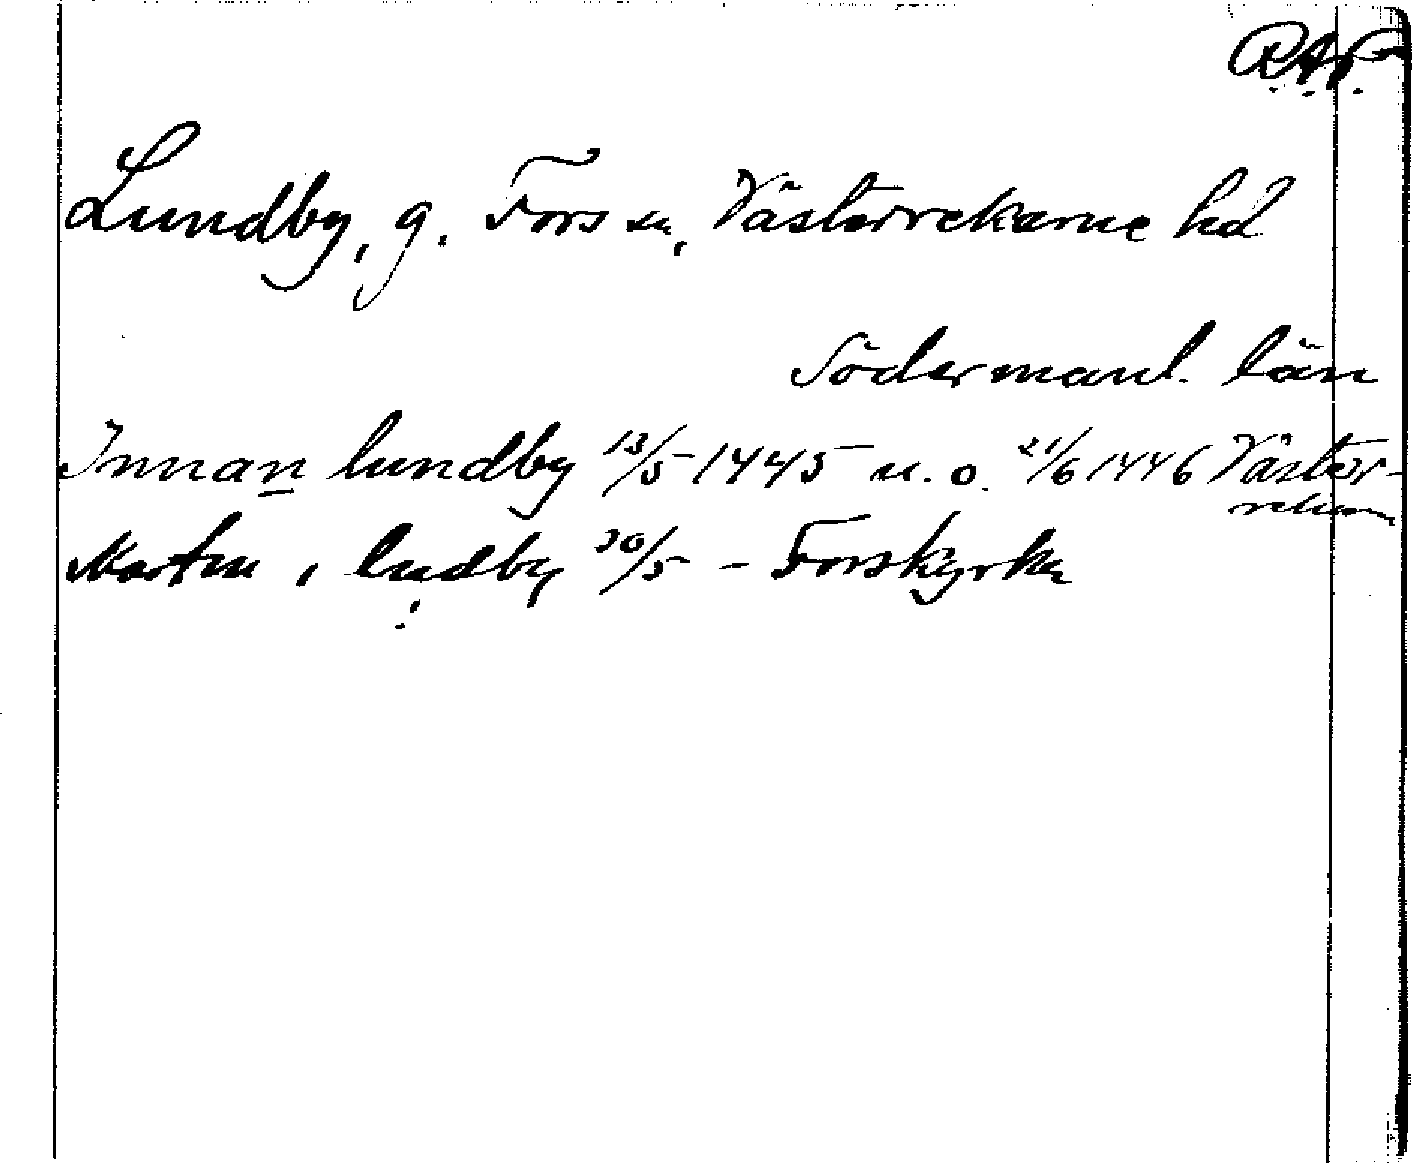 RAP
Lundby, g. Fors sn, Västerrekarne hd
Södermanl. län
Innan lundby 13/5 1445 u. o. 21/6 1446 Väster-
rekarne
Marten i ludby 30/5 - Forskyrka